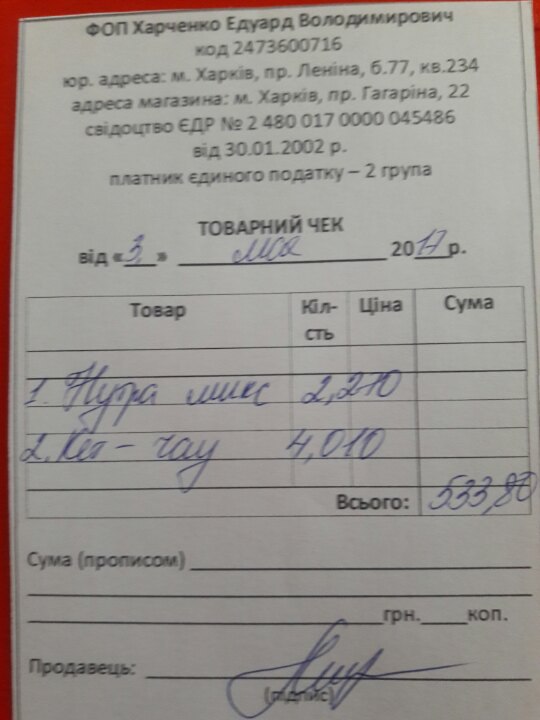 ФОП Харченко Едуард Володимирович
код 2473600716
юр. адреса: м. Харків, пр. Леніна, б.77, кв.234
адреса магазина: м. Харків, пр. Гагаріна, 22
свідоцтво ЄДР № 2 480 017 0000 045486
від 30.01.2002 р.
платник єдиного податку – 2 група
ТОВАРНИЙ ЧЕК
від «3» мая 2017 р.
Товар Кіл-сть Ціна Сума
1. Нутра микс 2,270
2. Кет-чау 4,010
Всього: 533,80
Сума (прописом)
грн. коп.
Продавець:
(підпис)